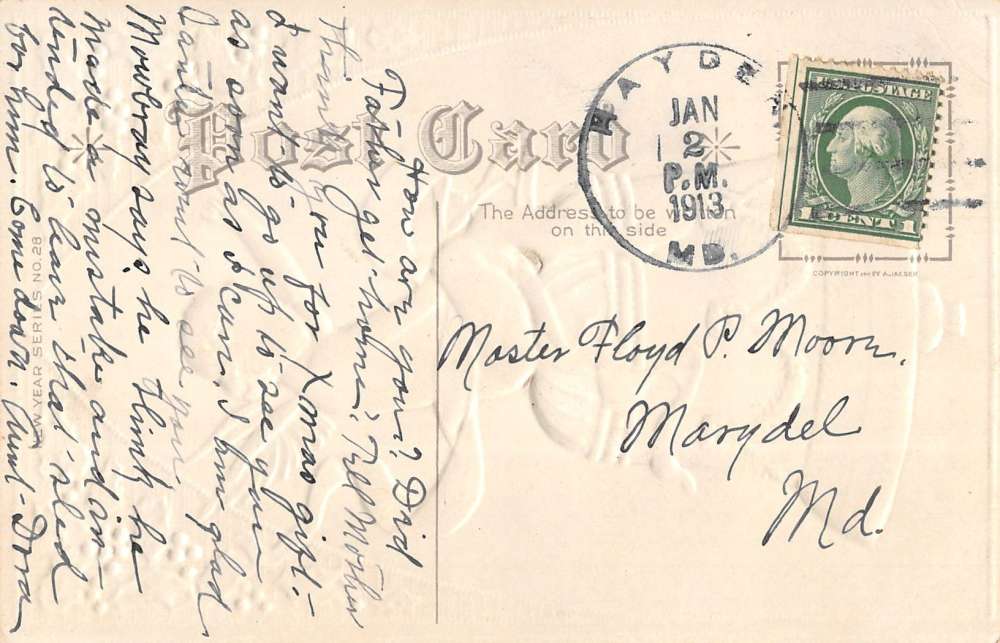 Post Card
The Address to be written
on this side
HAYDE
JAN
2
P.M.
1913
MD.
U.S. POSTAGE
1 CENT 1
COPYRIGHT BY A. JAEGER
NEW YEAR SERIES NO. 28
How are you? Did
Father get home? Tell Mother
Thank you for Xmas gift.-
I want to go up to see you
as soon as I can. I am glad
Santa went to see you.
Mowbray says he thinks he
made a mistake and in-
tended to leave that sled
for him. Come down. Aunt Dora
Master Floyd P. Moore,
Marydel
Md.